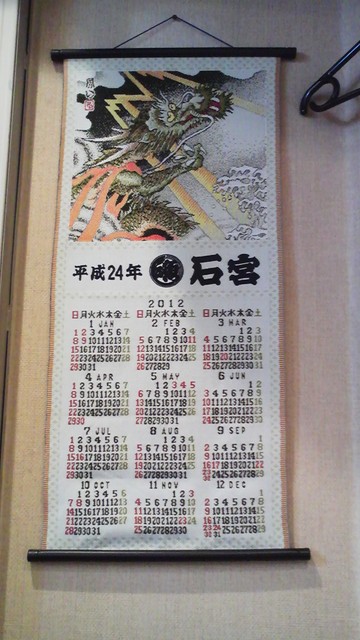 平成24年 石宮
2012
日月火水木金土 日月火水木金土 日月火水木金土
1 JAN 2 FEB 3 MAR
1 2 3 4 5 6 7 1 2 3 4 1 2 3
8 9 10 11 12 13 14 5 6 7 8 9 10 11 4 5 6 7 8 9 10
15 16 17 18 19 20 21 12 13 14 15 16 17 18 11 12 13 14 15 16 17
22 23 24 25 26 27 28 19 20 21 22 23 24 25 18 19 20 21 22 23 24
29 30 31 26 27 28 29 25 26 27 28 29 30 31
4 APR 5 MAY 6 JUN
1 2 3 4 5 6 7 1 2 3 4 5 1 2
8 9 10 11 12 13 14 6 7 8 9 10 11 12 3 4 5 6 7 8 9
15 16 17 18 19 20 21 13 14 15 16 17 18 19 10 11 12 13 14 15 16
22 23 24 25 26 27 28 20 21 22 23 24 25 26 17 18 19 20 21 22 23
29 30 27 28 29 30 31 24 25 26 27 28 29 30
7 JUL 8 AUG 9 SEP
1 2 3 4 5 6 7 1 2 3 4 1
8 9 10 11 12 13 14 5 6 7 8 9 10 11 2 3 4 5 6 7 8
15 16 17 18 19 20 21 12 13 14 15 16 17 18 9 10 11 12 13 14 15
22 23 24 25 26 27 28 19 20 21 22 23 24 25 16 17 18 19 20 21 22
29 30 31 26 27 28 29 30 31 23 24 25 26 27 28 29
30
10 OCT 11 NOV 12 DEC
1 2 3 4 5 6 1 2 3 1
7 8 9 10 11 12 13 4 5 6 7 8 9 10 2 3 4 5 6 7 8
14 15 16 17 18 19 20 11 12 13 14 15 16 17 9 10 11 12 13 14 15
21 22 23 24 25 26 27 18 19 20 21 22 23 24 16 17 18 19 20 21 22
28 29 30 31 25 26 27 28 29 30 23 24 25 26 27 28 29
30 31